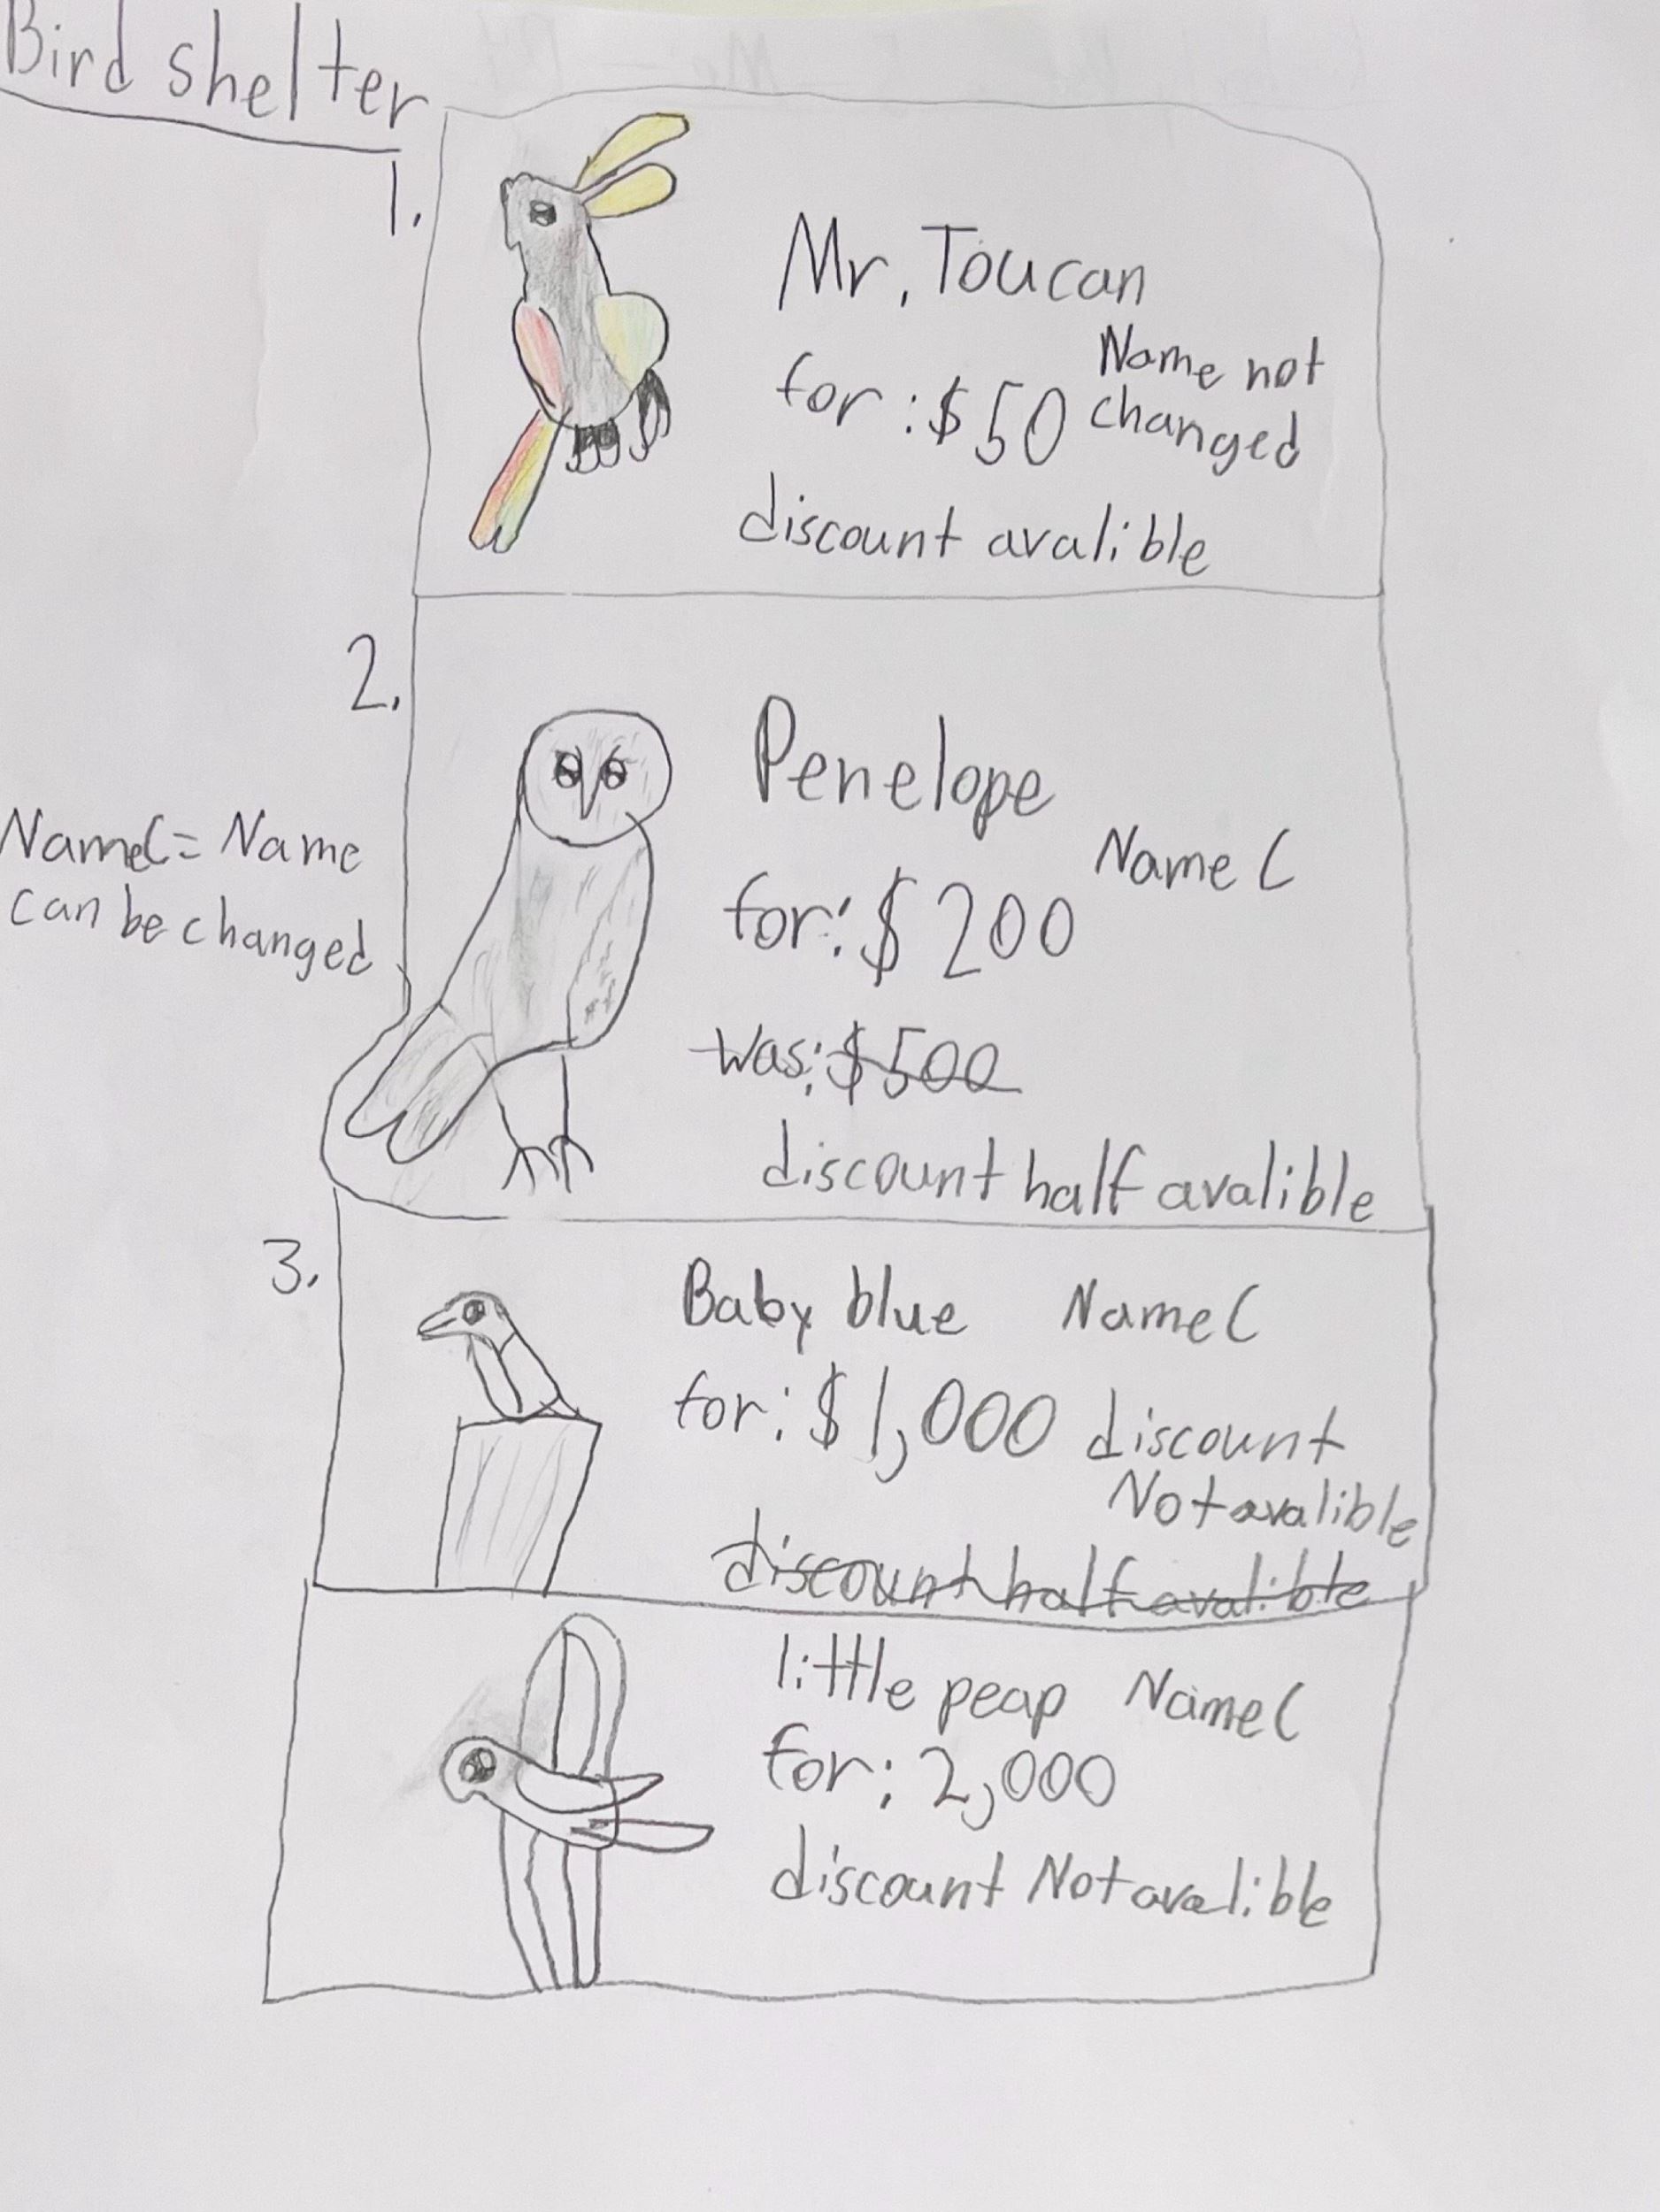 Bird shelter
1.
Mr. Toucan
for: $50
Name not
changed
discount avalible
2.
Penelope
NameC
for: $200
Was: $500
discount half avalible
NameC = Name
can be changed
3.
Baby blue NameC
for: $1,000 discount
Not avalible
discount half avalible
little peap NameC
for: 2,000
discount Not avalible